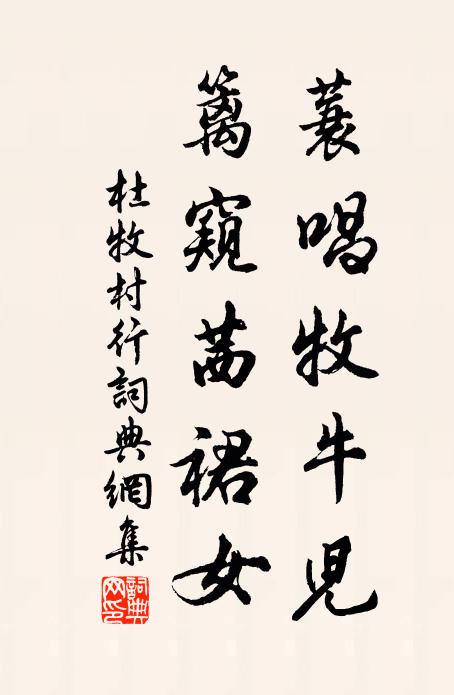 蓑唱牧牛兒
篱窺茜裙女
杜牧村行詞典網集
詞典網印